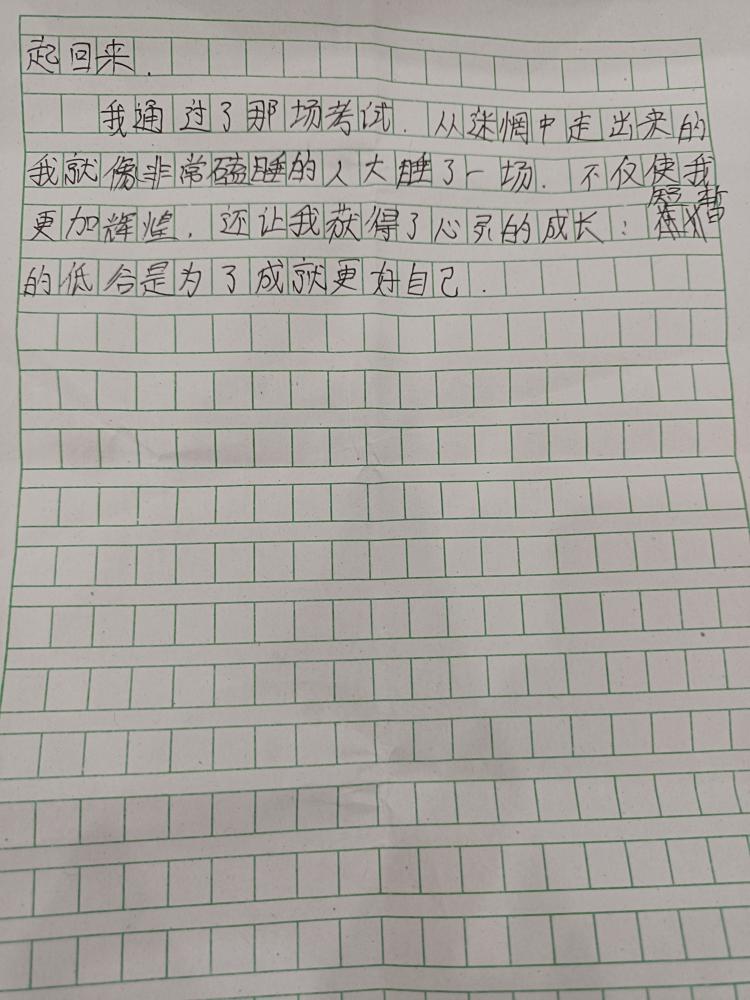 起回来.
我通过了那场考试.从迷惘中走出来的
我就像非常磕睡的人大睡了一场.不仅使我
更加辉煌.还让我获得了心灵的成长:暂
的低谷是为了成就更好自己.